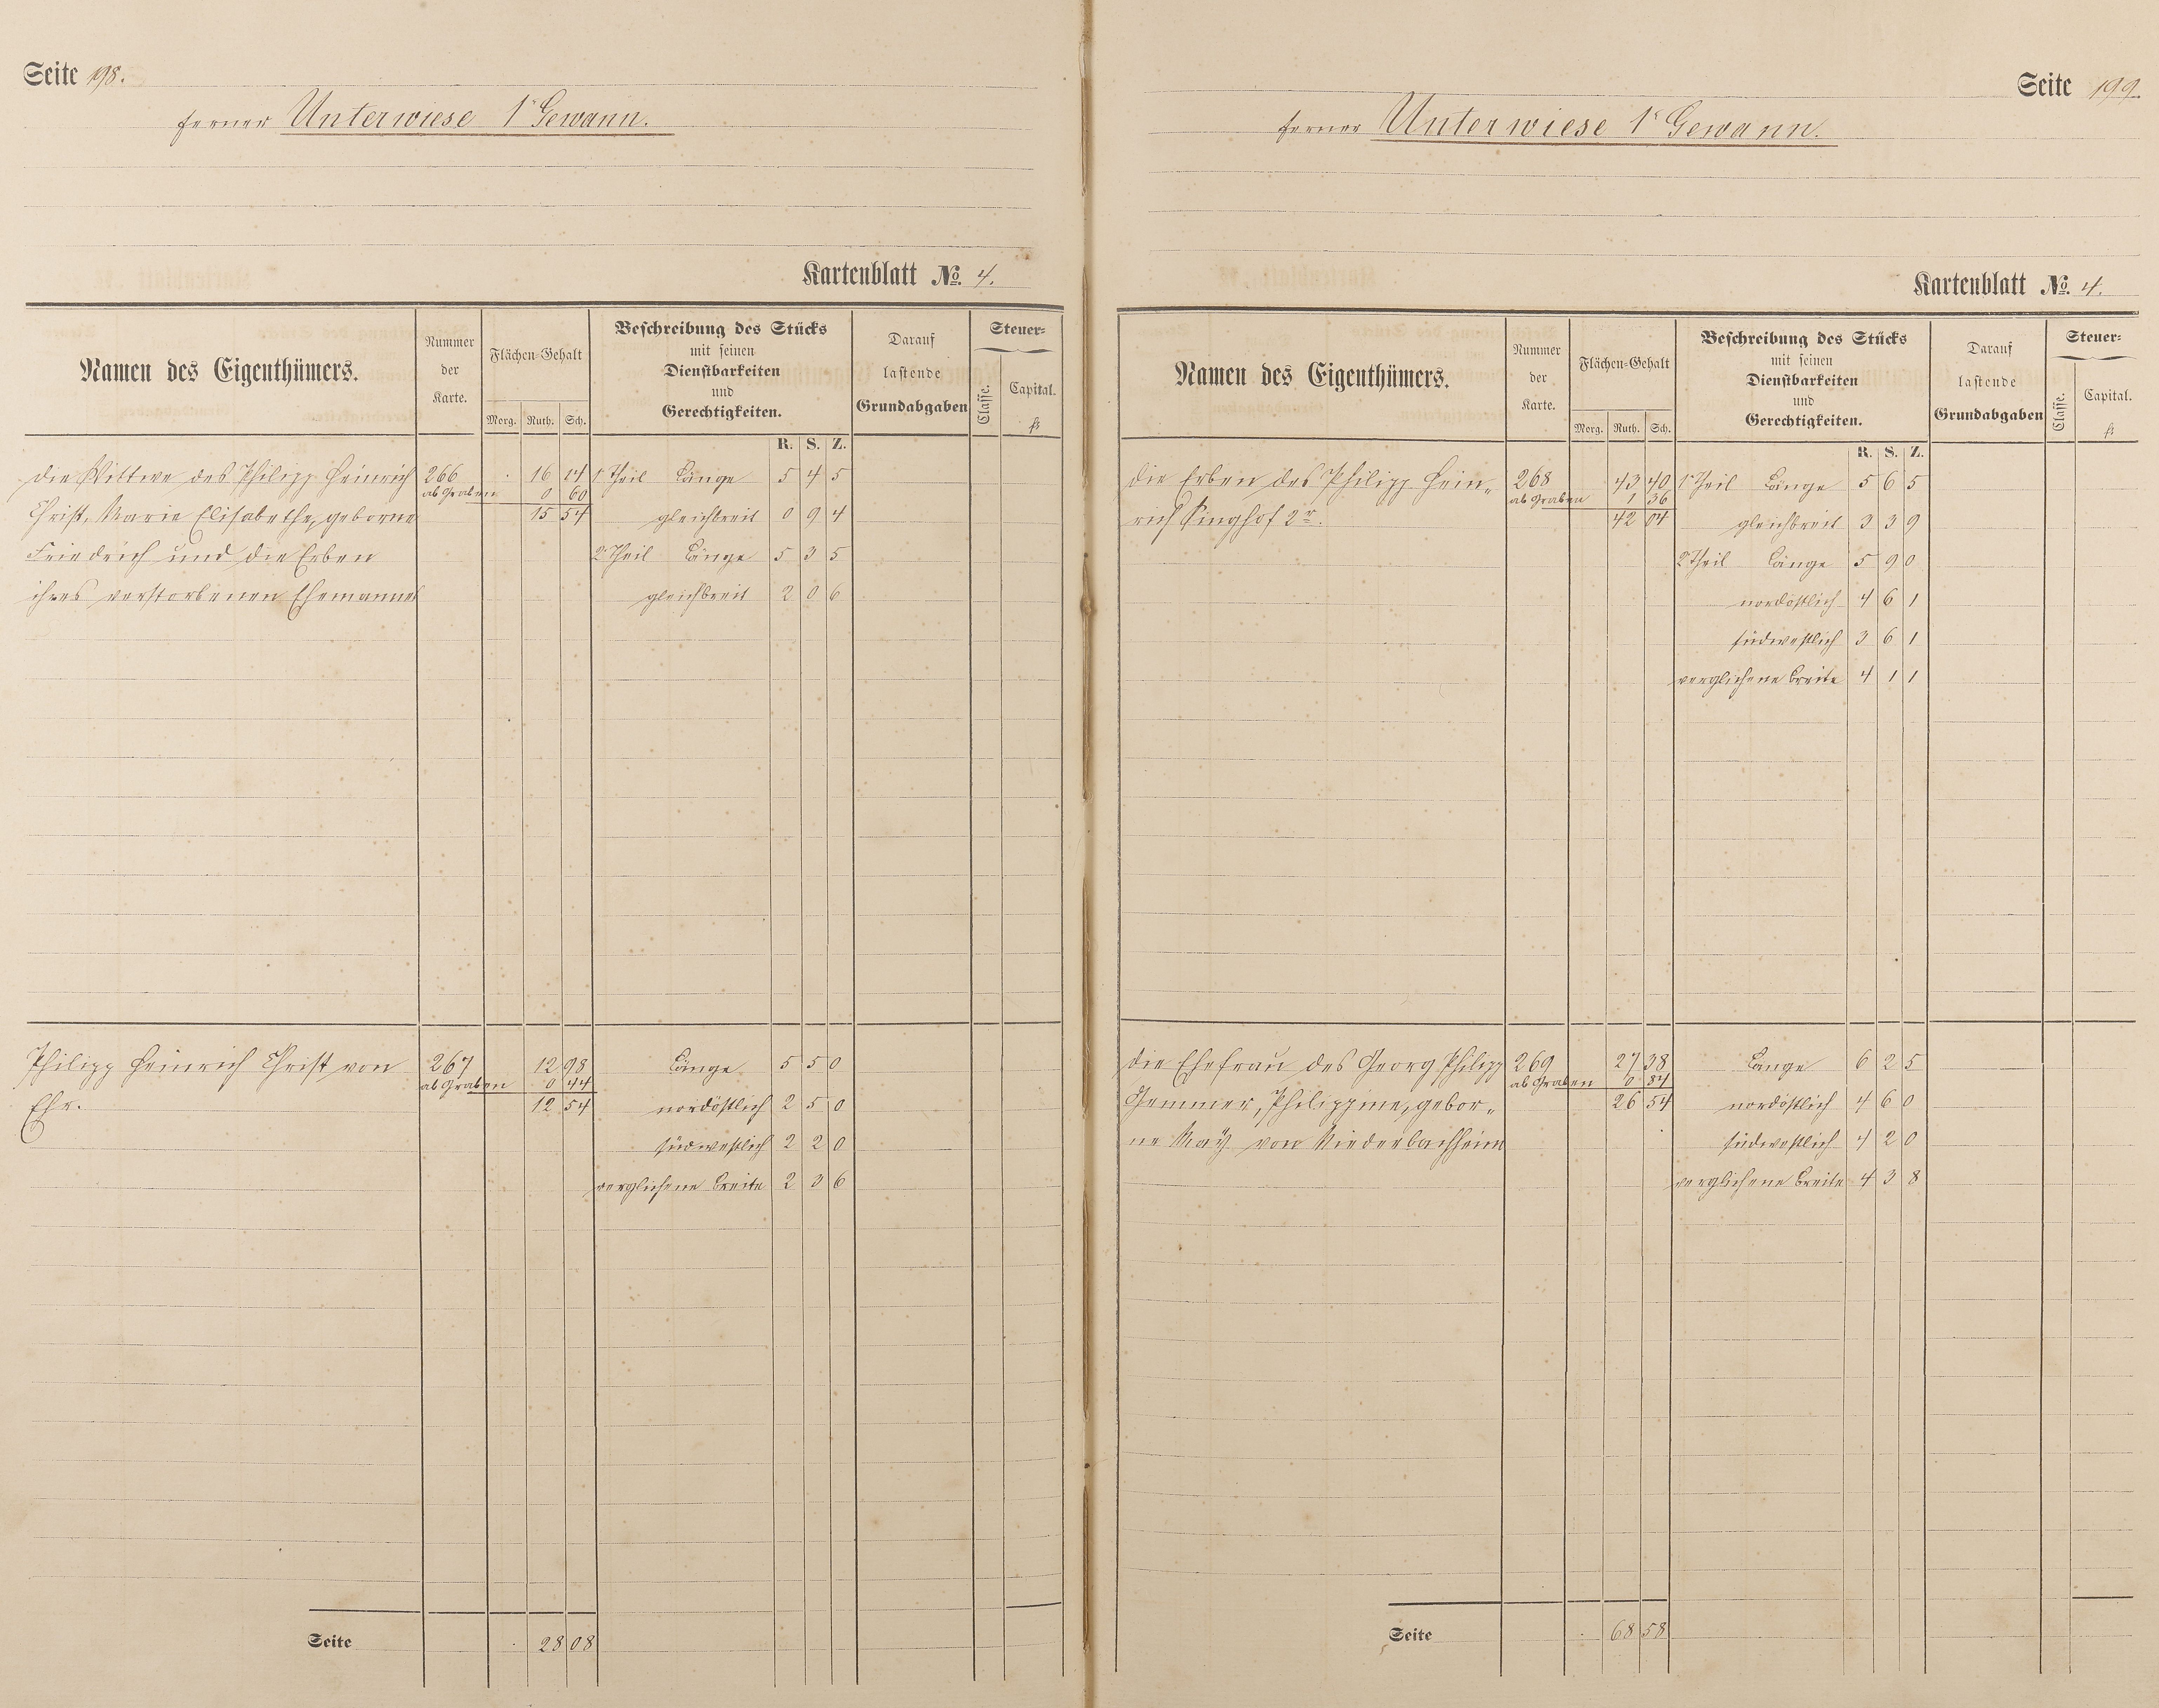 Seite 198.
ferner Unterwiese 1r Gewann.
Kartenblatt No. 4.
Namen des Eigenthümers.
Nummer der Karte.
Flächen-Gehalt
Morg. Ruth. Sch.
Beschreibung des Stücks
mit seinen
Dienstbarkeiten
und
Gerechtigkeiten.
Darauf
lastende
Grundabgaben
Steuer-
Classe.
Capital.
fl
R. S. Z.
die Wittwe des Philipp Heinrich 266 . 16 14 1r Theil Länge 5 4 5
ab Graben 0 60
Christ, Marie Elisabethe, geborne 15 54 gleichbreit 0 9 4
Friedrich und die Erben 2r Theil Länge 5 3 5
ihres verstorbenen Ehemannes gleichbreit 2 0 6
Philipp Heinrich Christ von 267 12 98 Länge 5 5 0
ab Graben 0 44
Ehr. 12 54 nordöstlich 2 5 0
südwestlich 2 2 0
verglichene Breite 2 3 6
Seite . 28 08
Seite 199.
ferner Unterwiese 1r Gewann.
Kartenblatt No. 4.
Namen des Eigenthümers.
Nummer der Karte.
Flächen-Gehalt
Morg. Ruth. Sch.
Beschreibung des Stücks
mit seinen
Dienstbarkeiten
und
Gerechtigkeiten.
Darauf
lastende
Grundabgaben
Steuer-
Classe.
Capital.
fl
R. S. Z.
die Erben des Philipp Hein- 268 43 40 1r Theil Länge 5 6 5
ab Graben 1 36
rich Singhof 2r. 42 04 gleichbreit 3 3 9
2r Theil Länge 5 9 0
nordöstlich 4 6 1
südwestlich 3 6 1
verglichene Breite 4 1 1
die Ehefrau des Georg Philipp 269 27 38 Länge 6 2 5
ab Graben 0 84
Gemmer, Philippine, gebor- 26 54 nordöstlich 4 6 0
ne Maÿ von Niederbachheim südwestlich 4 2 0
verglichene Breite 4 3 8
Seite . 68 58